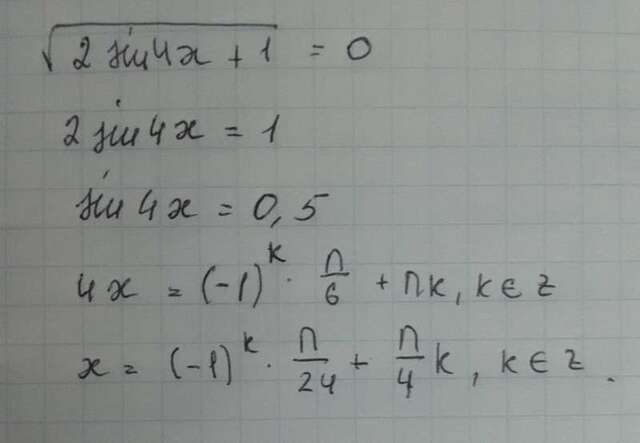 √(2 sin 4x + 1) = 0
2 sin 4x = 1
sin 4x = 0,5
4x = (-1)^k · π/6 + πk, k ∈ z
x = (-1)^k · π/24 + π/4 k, k ∈ z.